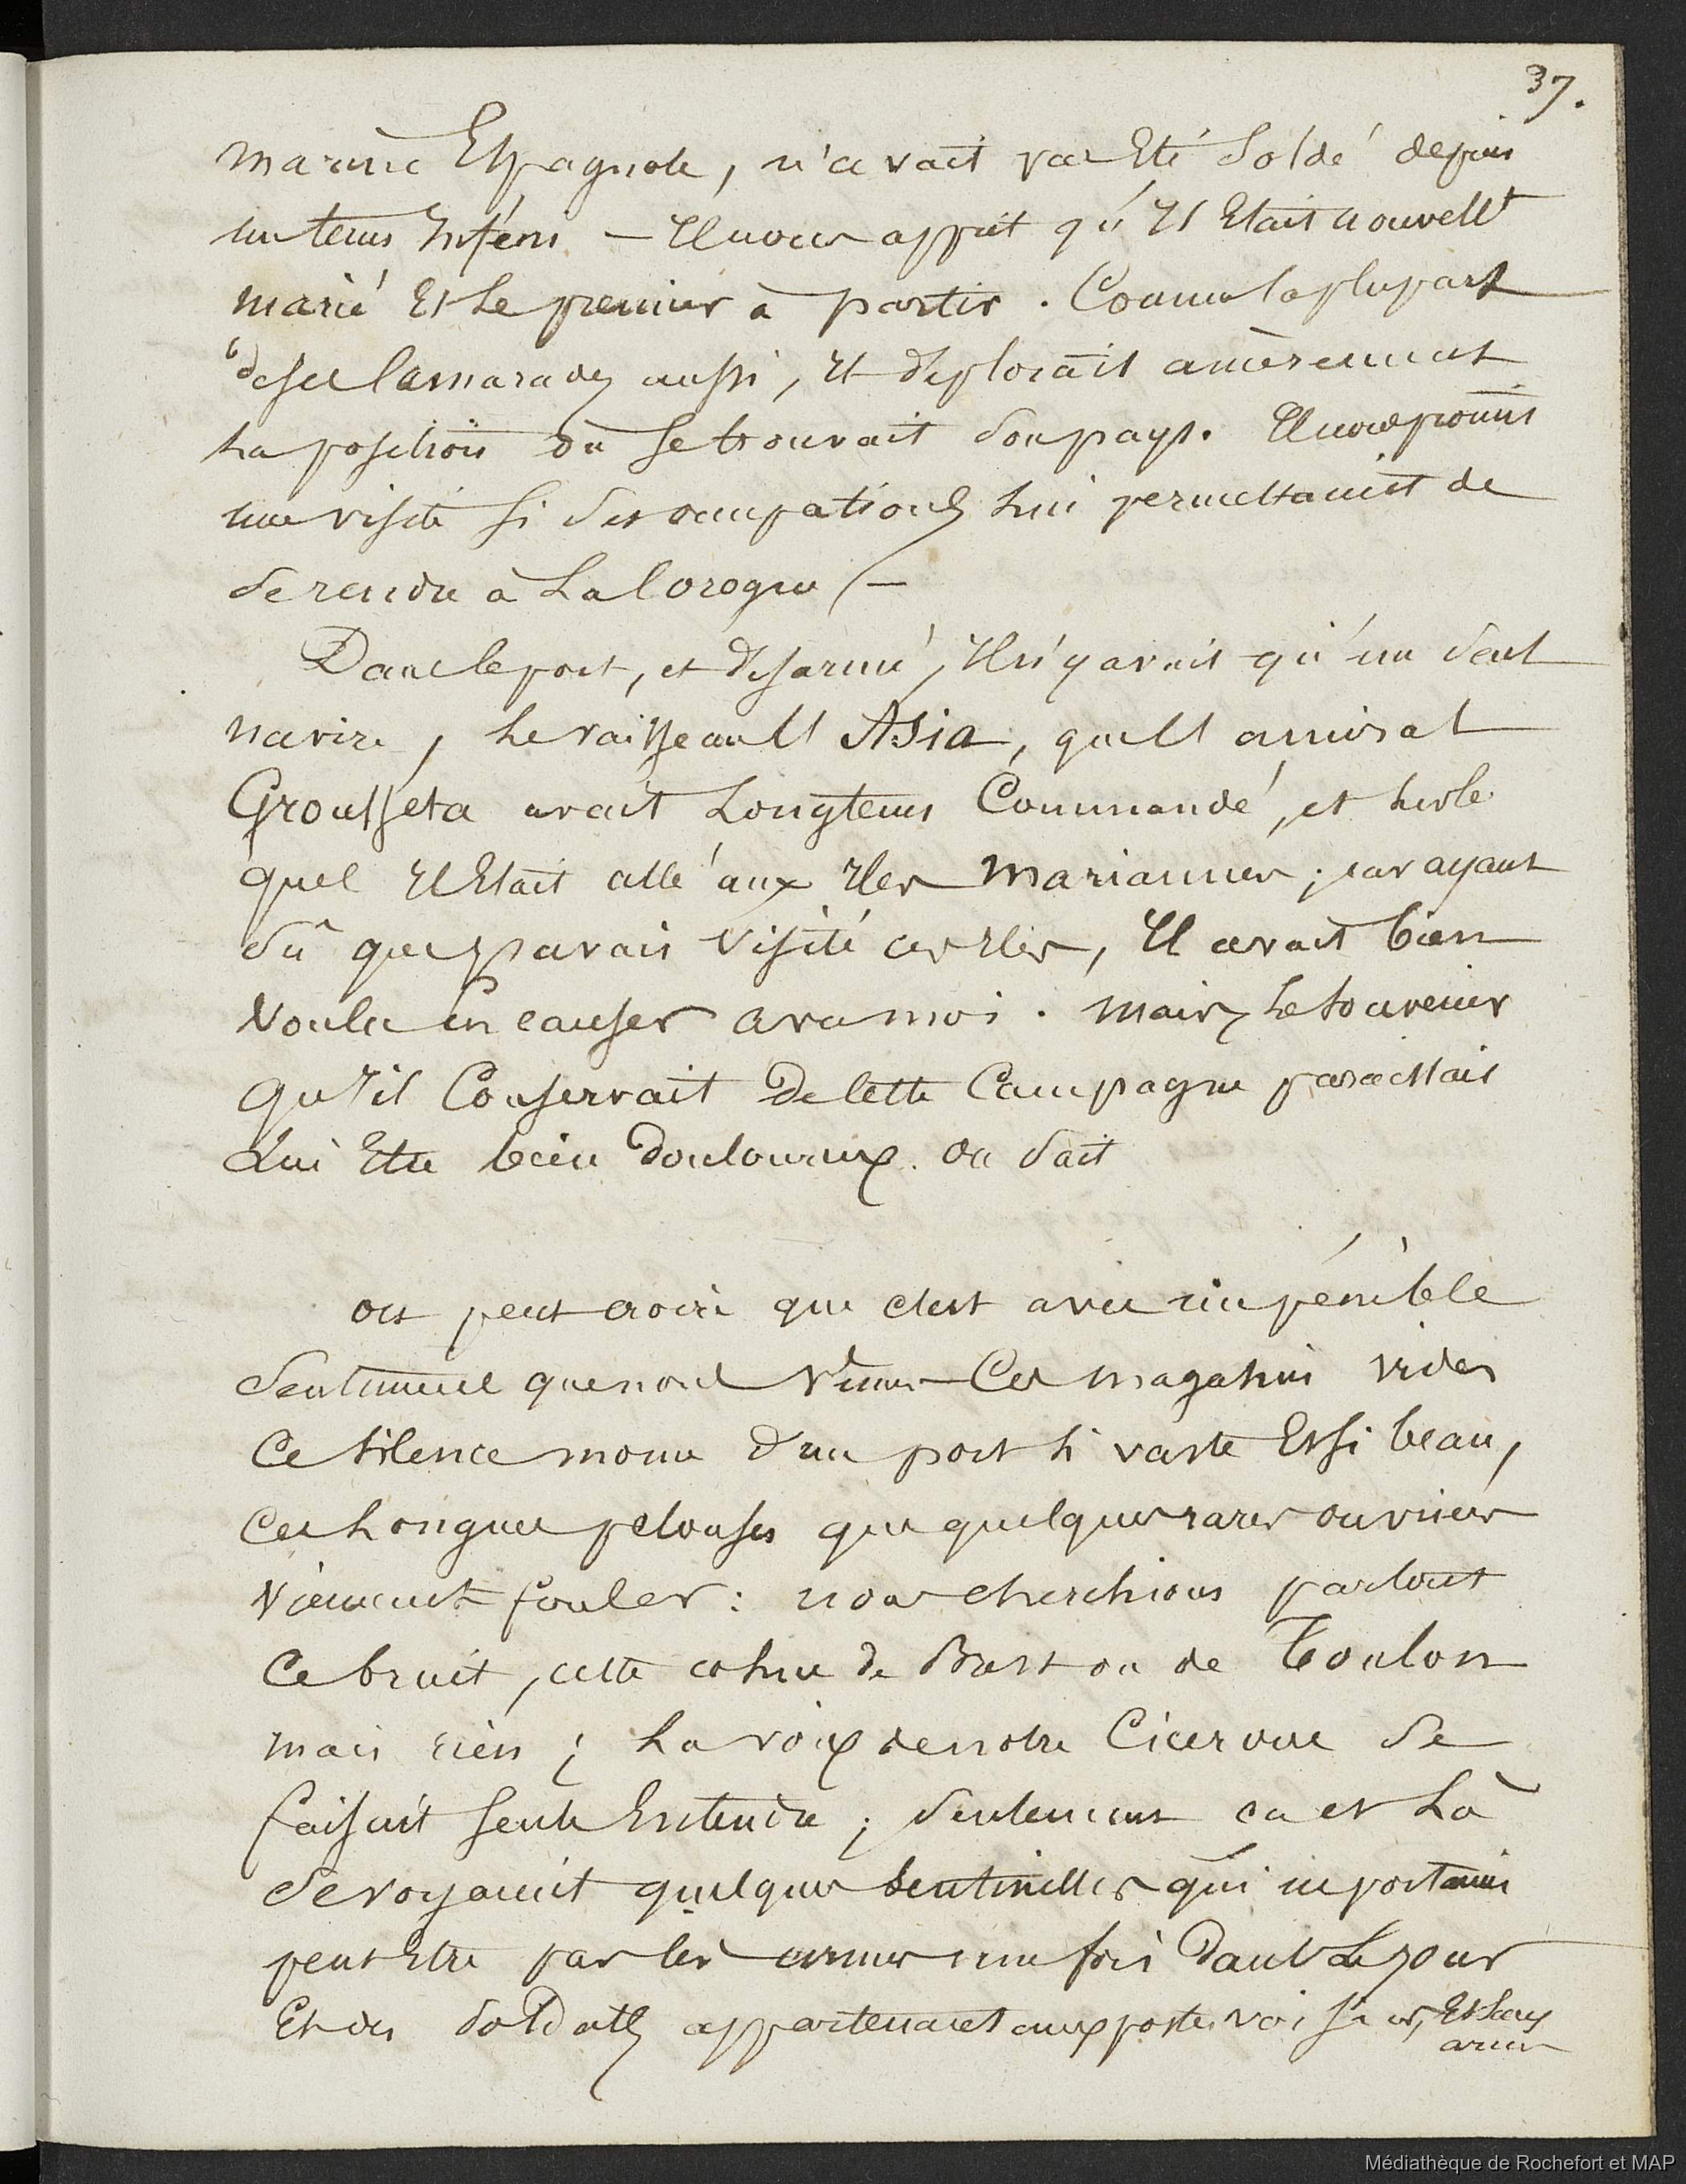 37.
marine Espagnole, n'avait pas Eté soldé depuis
un tems infini — Il nous apprit qu'Il Etait nouvellt
marié Et le premier à partir. Comme la plupart
de ses Camarades aussi, Il déplorait amèrement
La position où se trouvait son pays. Il nous promit
une visite si ses occupations Lui permettaient de
se rendre à La Corogne —
Dans le port, et désarmé, Il n'y avait qu'un seul
navire, Le vaisseau Asia, que amiral
avait Longtems Commandé, et sur le
quel Il Etait allé aux Iles Mariannes; car ayant
sû que j'avais visité ces Iles, Il avait bien
voulu en causer avec moi. Mais Le souvenir
qu'il Conservait de cette Campagne paraissait
Lui Etre bien douloureux. on sait
on peut croire que c'est avec un pénible
sentiment que nous vimes Ces magasins vides
Ce silence morne d'un port si vaste Et si beau,
Ces Longues pelouses que quelques rares ouvriers
viennent fouler: nous cherchions partout
Ce bruit, cette cohue de Brest ou de Toulon
mais rien; La voix de notre Cicerone se
faisait seule Entendre; seulement ca et Là
se voyaient quelques sentinelles qui ne portaient
peut Etre pas les armes une fois dans Le jour
Et des soldats appartenant aux postes voisins, Et sans
armes
Médiathèque de Rochefort et MAP